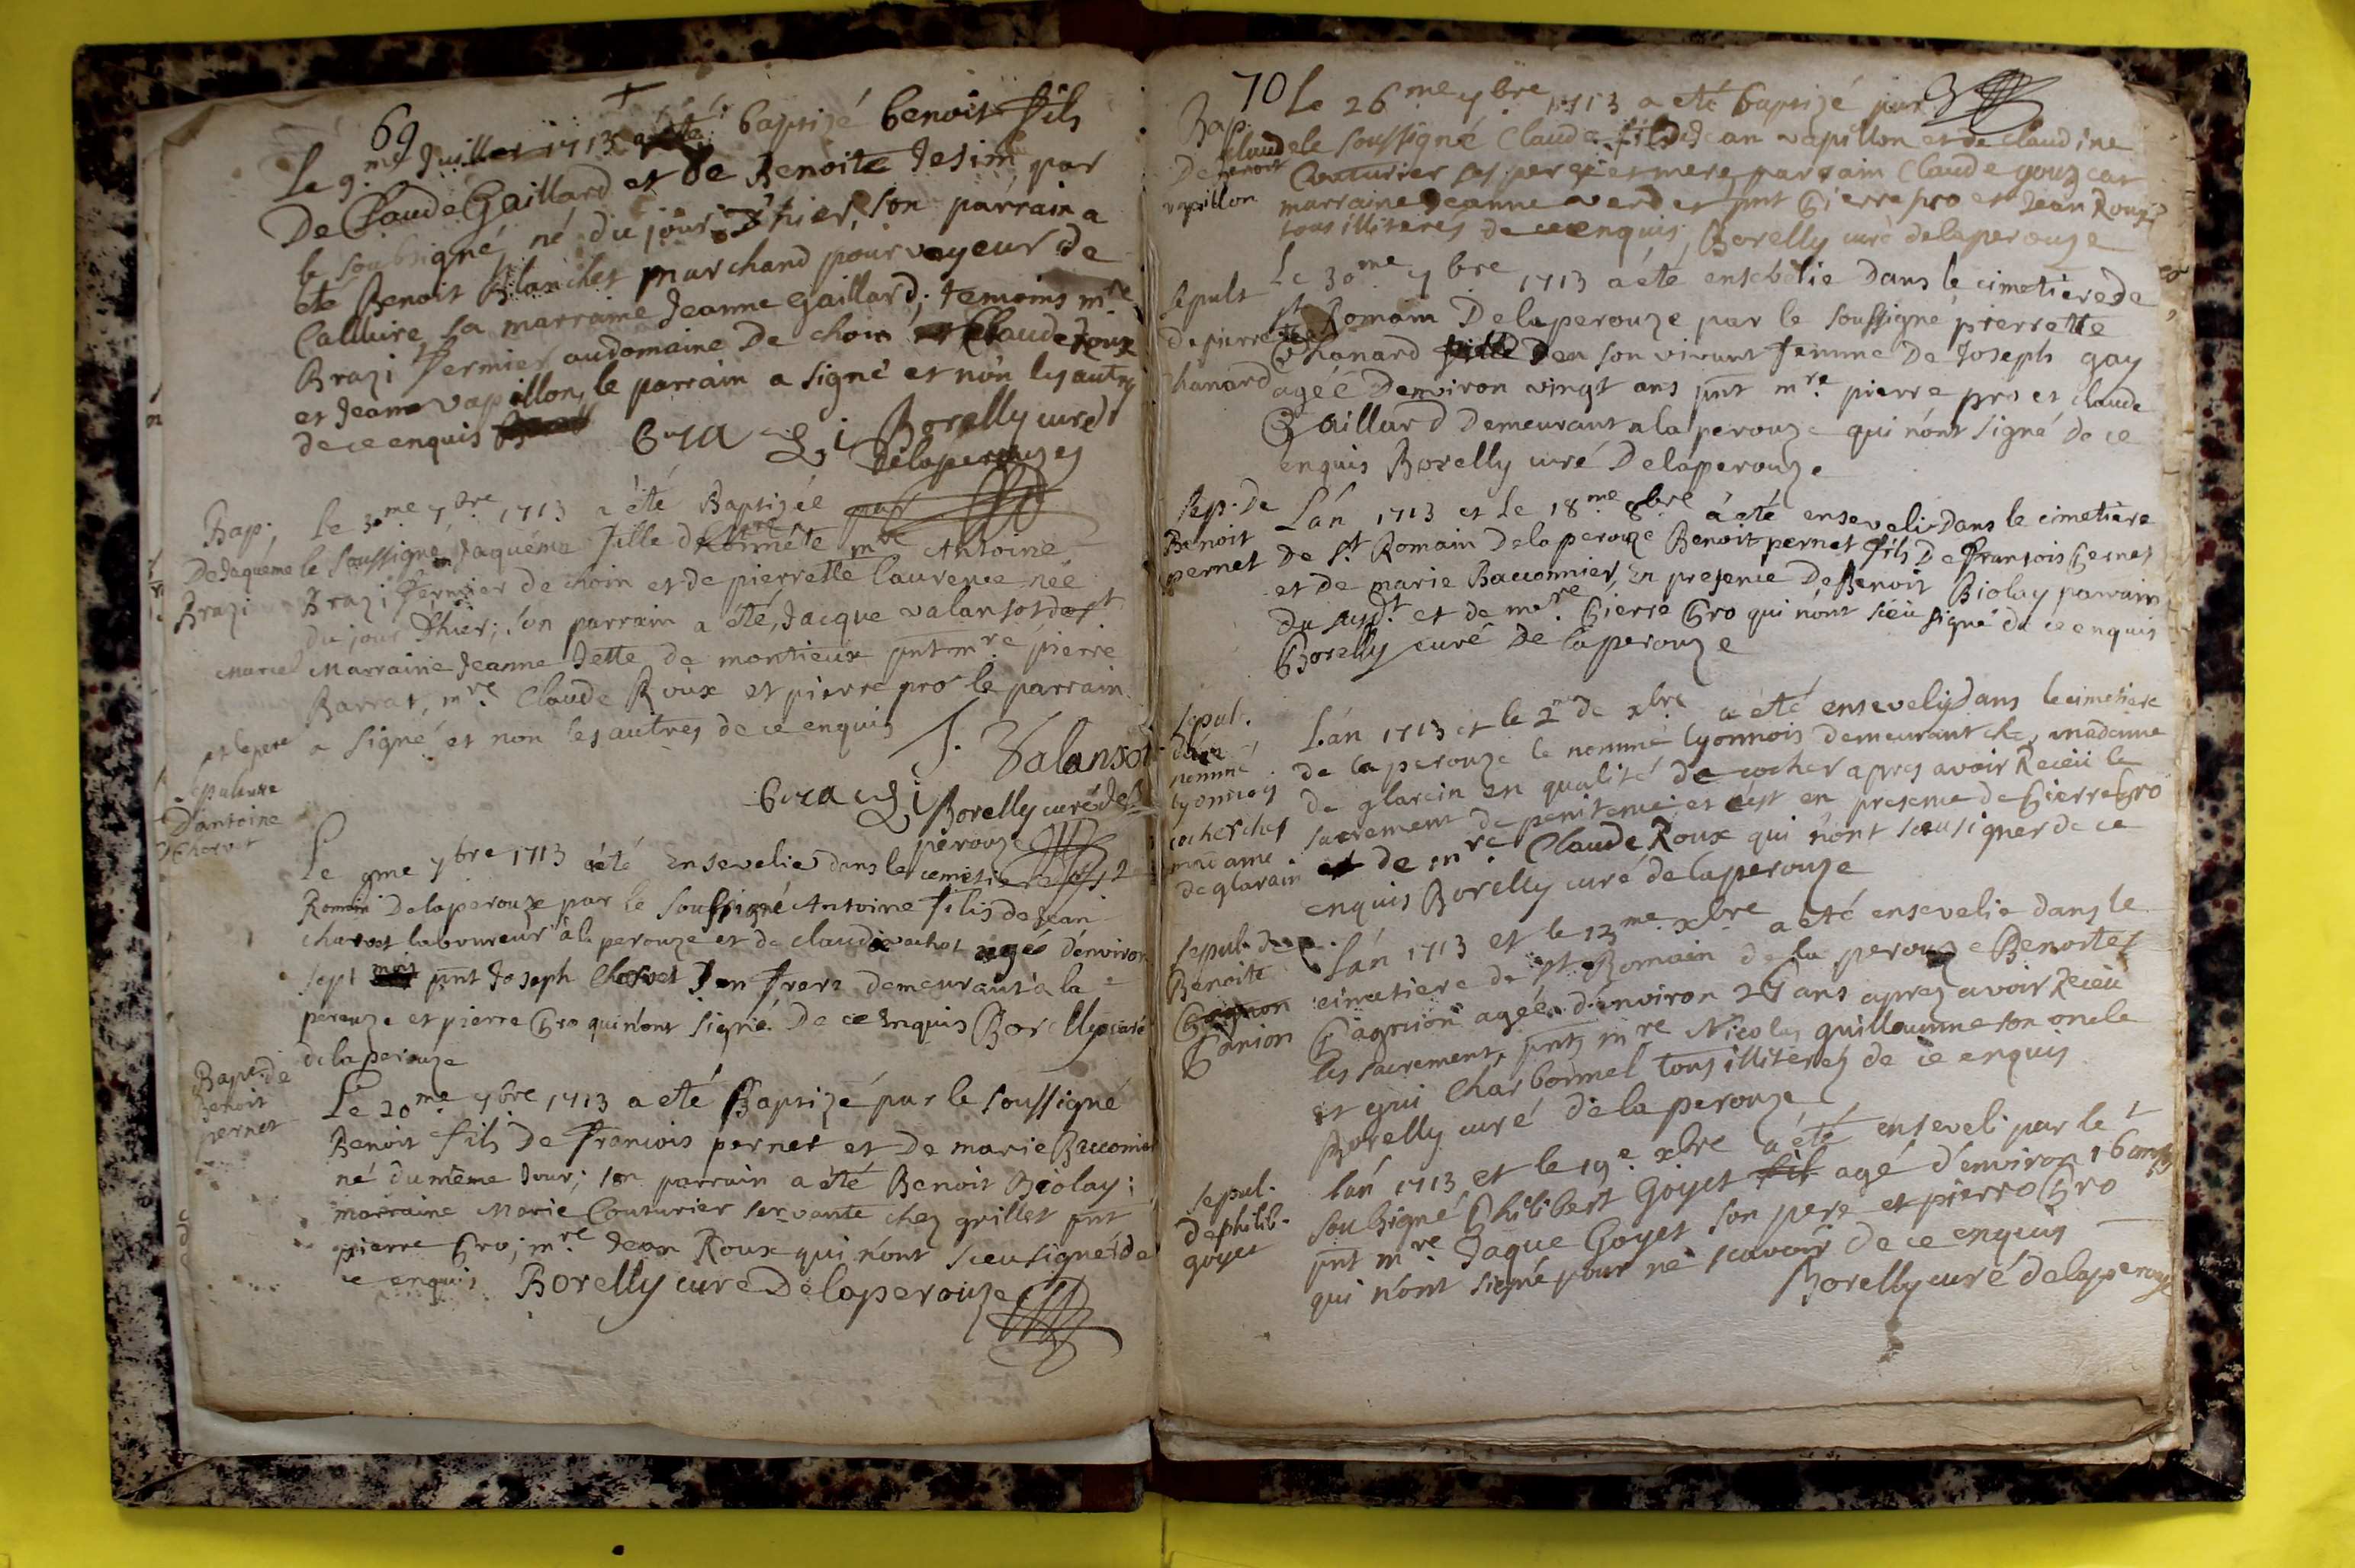 69
Le 9.me Juillet 1713 a été baptizé benoist fils
De Claude Gaillard et de Benoite Jesimé par
le soubsigné, né du jour D'hier, son parrain a
été Benoit Blanchet marchand pourvoyeur de
Calluire, sa marraine Jeanne Gaillard; temoins mre
Brazi fermier audomaine De choin et Claude Roux
et Jean vapillon, le parrain a signé et non les autres
de ce enquis
brazi Borelly curé
Delaperouze
Bap:
De Jaquéme
Brazi
le 30me 7bre 1713 a été Baptizée par
le soussigné Jaquéme fille de mre Antoine
Brazi fermier de choin et de pierrette laurence née
du jour D'hier; son parrain a été, Jacque valansot
Marraine Jeanne Jette de montieux pnt mre pierre
Barrat, mre Claude Roux et pierre pro le parrain
et le pere a signé et non les autres de ce enquis
J. Valansot
brazi Borelly curé de la
perouze
sepulture
D'antoine
Chorvet
Le 9me 7bre 1713 a été Ensevelie dans le cemetiere de st
Romain Delaperouze par le soussigné Antoine fils de Jean
charvet laboureur à la perouze et de claudi achat agée d'environ
sept pnt Joseph Chervet son frere demeurant à la
perouze et pierre Gro qui n'ont signé De ce Enquis Borelly curé
delaperouze
Bapt. de
Benoit
pernet
Le 20me 7bre 1713 a été Baptizé par le soussigné
Benoit fils De francois pernet et De marie Bacconier
né du même Jour; son parrain a été Benoit Biolay;
marraine Marie Couturier servante chez grillet pnt
pierre Gro; mre Jean Roux qui n'ont sceu signé de
ce enquis Borelly curé Delaperouze
70
Bap.
Claude
De benoit
vapillon
Le 26me 7bre 1713 a été baptizé par
le soussigné Claude fils de Jean vapillon et de claudine
Couturier ses pere et mere parrain Claude
marraine Jeanne verdet pnt Pierre pro et Jean Roux
tous illiteres de ce enquis, Borelly curé delaperouze
sepult
de pierrette
chanard
Le 30me 7bre 1713 a été ensebelie Dans le cimetiere de
st Romain Delaperouze par le soussigné pierrette
Chanard fille den son vivant femme De Joseph gay
agée Denviron vingt ans pnt mre pierre pro et claude
Gaillard Demeurant a la perouze qui n'ont signé de ce
enquis Borelly curé Delaperouze
sep. De
Benoit
pernet
L'an 1713 et Le 18me 8bre a été enseveli Dans le cimetiere
De St Romain Delaperouze Benoit pernet fils De francois Pernet
et de marie Bacconnier, En presence De Benoit Biolay parrain
Du susdt et de mre Pierre Gro qui n'ont sceu signé de ce enquis
Borelly curé De laperouze
sepul.
d'un
nommé
lyonnois
cocher chez
madame
de glarain
L'an 1713 et le 2 de xbre a été ensevely dans le cimetiere
de la perouze le nommé lyonnois demeurant chez madame
de glarein en qualité de cocher apres avoir Receu le
sacrement de penitence et c'est en presence de Pierre Gro
et de mre Claude Roux qui n'ont sceu signer de ce
enquis Borelly curé delaperouze
sepul. de
Benoite
Gagnon
Ganion
L'an 1713 et le 12me xbre a été ensevelie dans le
cimetiere de st Romain de la perouze Benoite
Gagnion agée d'environ 24 ans aprez avoir Receu
les sacrement, pnts mre Nicolas guillaume son oncle
et gui Charbonnel tous illiterez de ce enquis
Borelly curé delaperouze
sepul.
de philib.
goyet
L'an 1713 et le 19e xbre a été enseveli par le
soubsigné Philibert Goyet fils agé d'environ 16 ans
pnt mre Jaque Goyet son pere et pierre Gro
qui n'ont signé pour ne scavoir de ce enquis
Borelly curé delaperouze